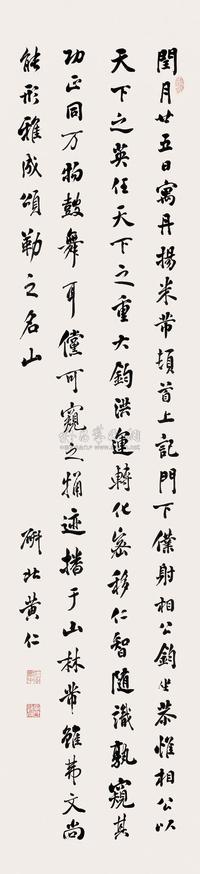 閏月廿五日寓丹揚米芾頓首上記門下僕射相公鈞坐恭惟相公以
天下之英任天下之重大鈞洪運轉化密移仁智隨識孰窺其
功正同万物鼓舞耳儻可窺之蹟播于山林芾雖弗文尚
能形雅成頌勒之名山
研北黄仁